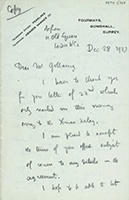 Copy
FOURWAYS,
GOMSHALL,
SURREY.
Dec 28 1937
Dear Mr Gollancz
I have to thank you
for your letter of 23rd which
only reached me this morning
owing to the Xmas holiday.
I am glad to accept
the terms of your offer subject
of course to any details in the
agreement.
I hope to be able to let